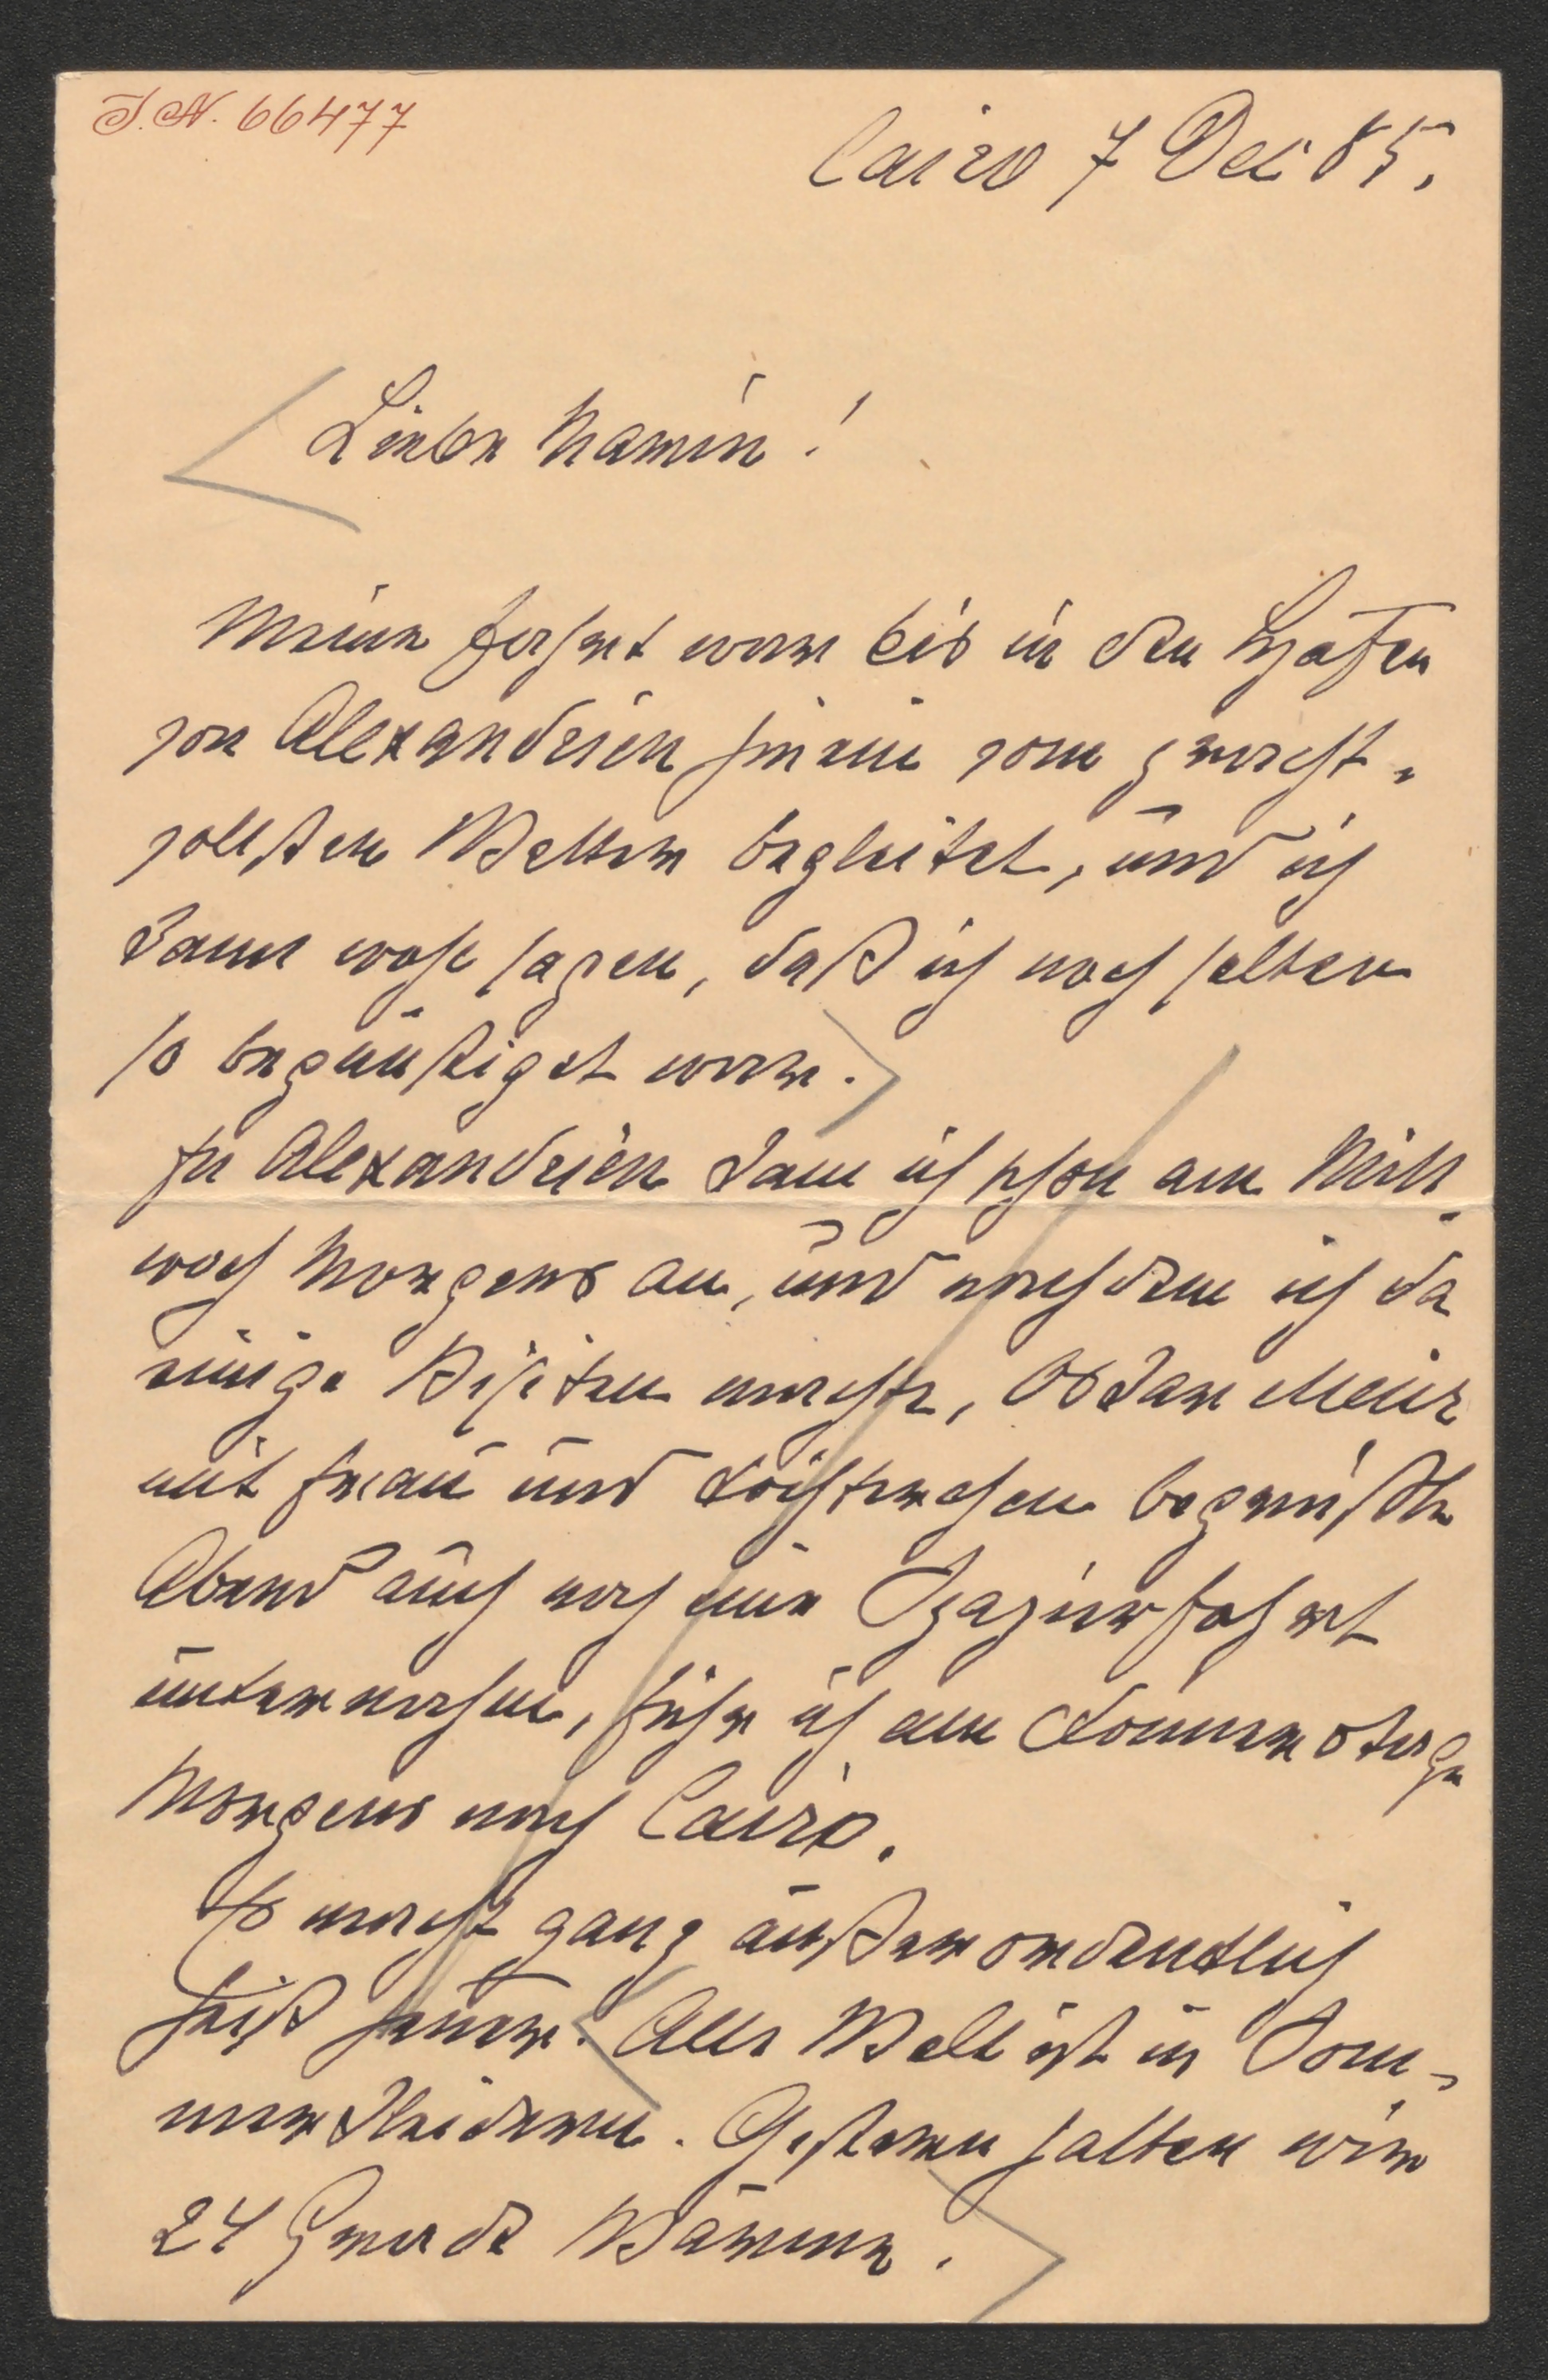 I.N. 66477
Cairo 7 Dec 85.
Liebe Mamin!
Meine Fahrt war bis in den Hafen
von Alexandrien hinein vom pracht-
vollsten Wetter begleitet, und ich
kann wohl sagen, daß ich noch selten
so begünstiget war.
In Alexandrien kam ich schon am Mitt-
woch Morgens an, und nachdem ich da
einige Visiten machte, Oskar Meur
mit Frau und Töchterchen begrüßte
Abend auch noch eine Spazierfahrt
unternahm, fuhr ich am Donnerstage
Morgens nach Cairo.
Es macht ganz außerordentlich
heiß heuer. Alle Welt ist in Som-
merkleidern. Gestern hatten wir
24 Grade Wärme.